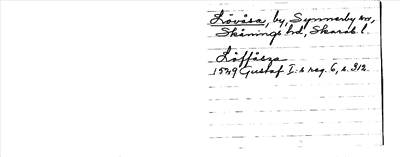 Lövåsa, by, Synnerby sn,
Skånings hd, Skarab. l.
Löffåsza
1549 Gustaf I:s reg. 6, s. 312.